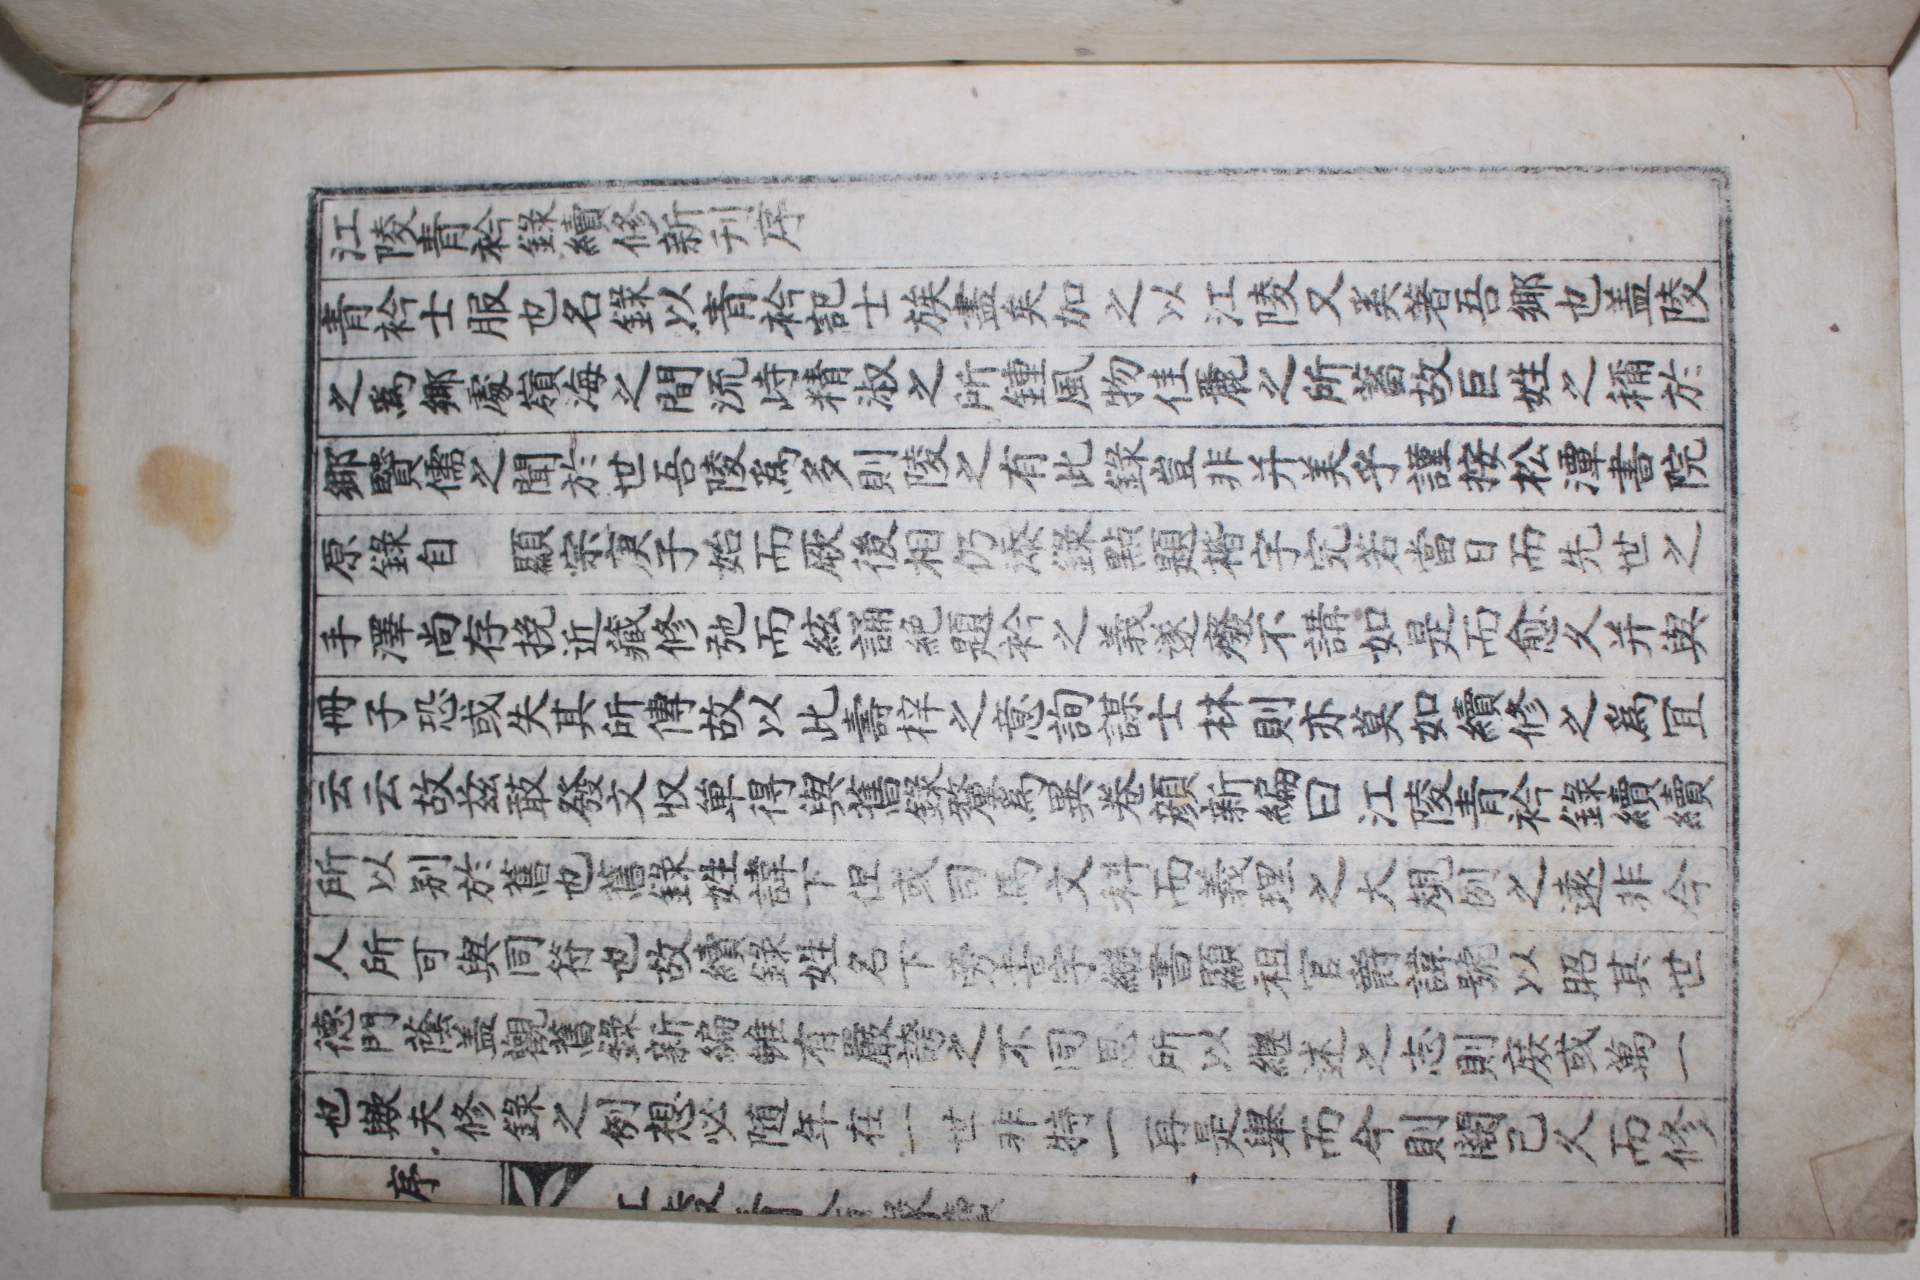 江陵青衿錄續修新刊序
青衿士服也名錄以青衿記士族盡矣加之以江陵又奚著吾鄉也盖陵
之爲鄉處嶺海之間流峙精淑之所鍾風物佳麗之所蓄故巨姓之稱於
鄉賢儒之聞於世吾陵爲多則陵之有此錄豈非并美乎謹按松潭書院
原錄自 顯宗庚子始而厥後相仍添錄點題楷字完若當日而先世之
手澤尚存挽近藏修弛而絃誦絕題衿之義遂廢不講如是而愈久并與
冊子恐或失其所傳故以此壽梓之意詢謀士林則亦莫如續修之爲宜
云云故玆敢發文收单得與舊錄釐爲異卷顔新編曰江陵青衿錄續續
所以别於舊也舊錄姓諱下但或司馬文科而義理之大規例之遠非今
人所可與同符也故續錄姓名下旁書字繼書顯祖官爵諱號以昭其世
德門蔭盖觀舊錄新編雖有嚴誇之不同思所以繼述之志則庶或萬一
也歟夫修錄之例想必随年在一世非特一再是舉而今則闕已久而修
序
江陵青衿錄續